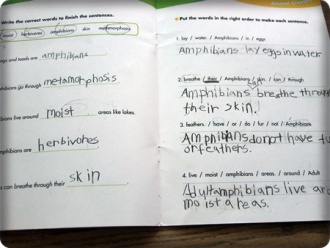 Write the correct words to finish the sentences.
moist herbivores amphibians skin metamorphosis
ogs and toads are amphibians
ibians go through metamorphosis
ibians live around moist areas like lakes.
mphibians are herbivores
s can breathe through their skin
Put the words in the right order to make each sentence.
1. lay / water. / Amphibians / in / eggs
Amphibians lay eggs in water
2. breathe / their / Amphibians / skin / can / through
Amphibians breathe through
their skin.
3. feathers. / have / or / do / fur / not / Amphibians
Amphibians do not have fu
or feathers.
4. live / moist / amphibians / areas. / around / Adult
Adult amphibians live aro
moist areas.